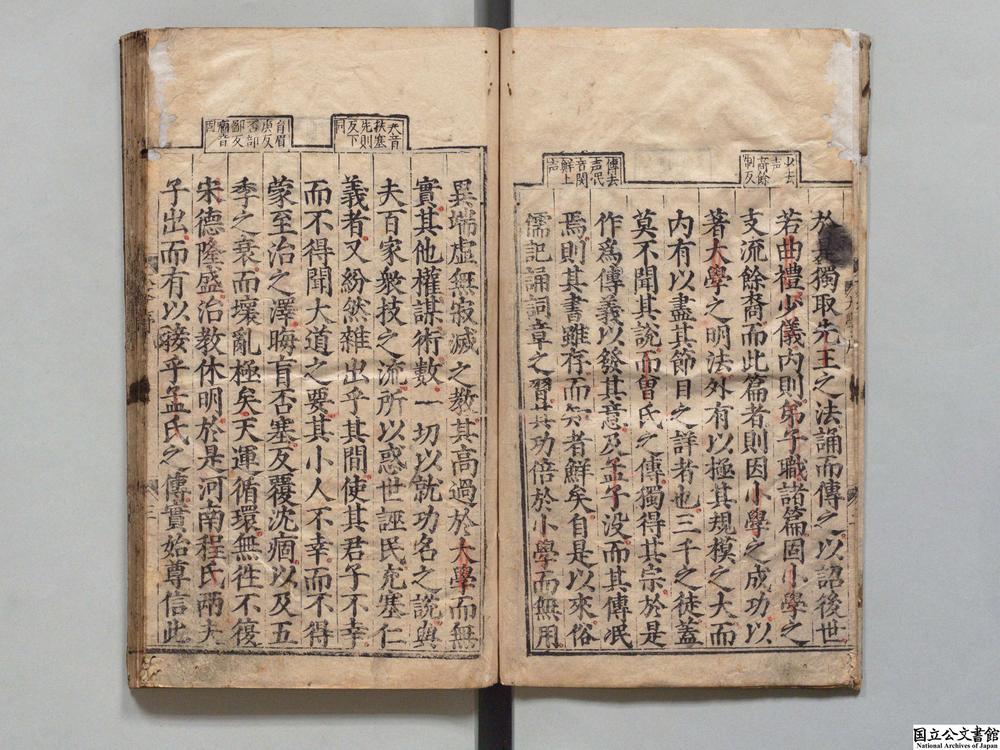 少去
声
裔餘
制反
傳去
声泯
音閔
鮮上
声
於是獨取先王之法誦而傳之以詔後世
若曲禮少儀内則弟子職諸篇固小學之
支流餘裔而此篇者則因小學之成功以
著大學之明法外有以極其規模之大而
内有以盡其節目之詳者也三千之徒蓋
莫不聞其說而曾氏之傳獨得其宗於是
作爲傳義以發其意及孟子没而其傳泯
焉則其書雖存而知者鮮矣自是以來俗
儒記誦詞章之習其功倍於小學而無用
夫音
扶塞
先則
反下
同
盲眉
庚反
否部
鄙反
痼音
固
異端虛無寂滅之教其高過於大學而無
實其他權謀術數一切以就功名之說與
夫百家衆技之流所以惑世誣民充塞仁
義者又紛然雜出乎其間使其君子不幸
而不得聞大道之要其小人不幸而不得
蒙至治之澤晦盲否塞反覆沈痼以及五
季之衰而壞亂極矣天運循環無徃不復
宋德隆盛治教休明於是河南程氏兩夫
子出而有以接乎孟氏之傳實始尊信此
国立公文書館
National Archives of Japan